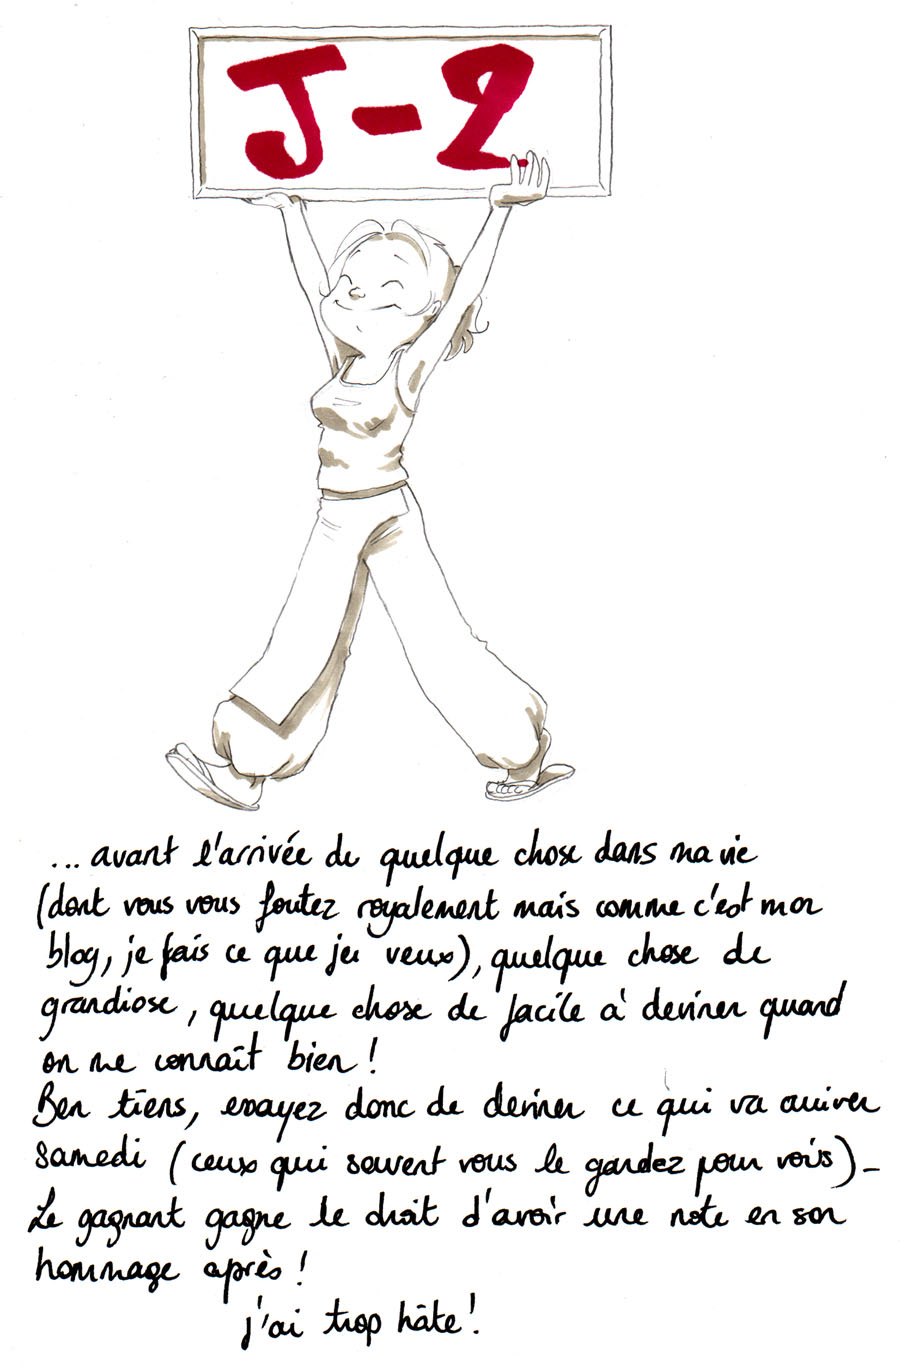 J-2
... avant l'arrivée de quelque chose dans ma vie
(dont vous vous foutez royalement mais comme c'est mon
blog, je fais ce que je veux), quelque chose de
grandiose, quelque chose de facile à deviner quand
on me connaît bien !
Ben tiens, essayez donc de deviner ce qui va arriver
samedi (ceux qui savent vous le gardez pour vous)_
Le gagnant gagne le droit d'avoir une note en son
hommage après !
j'ai trop hâte !